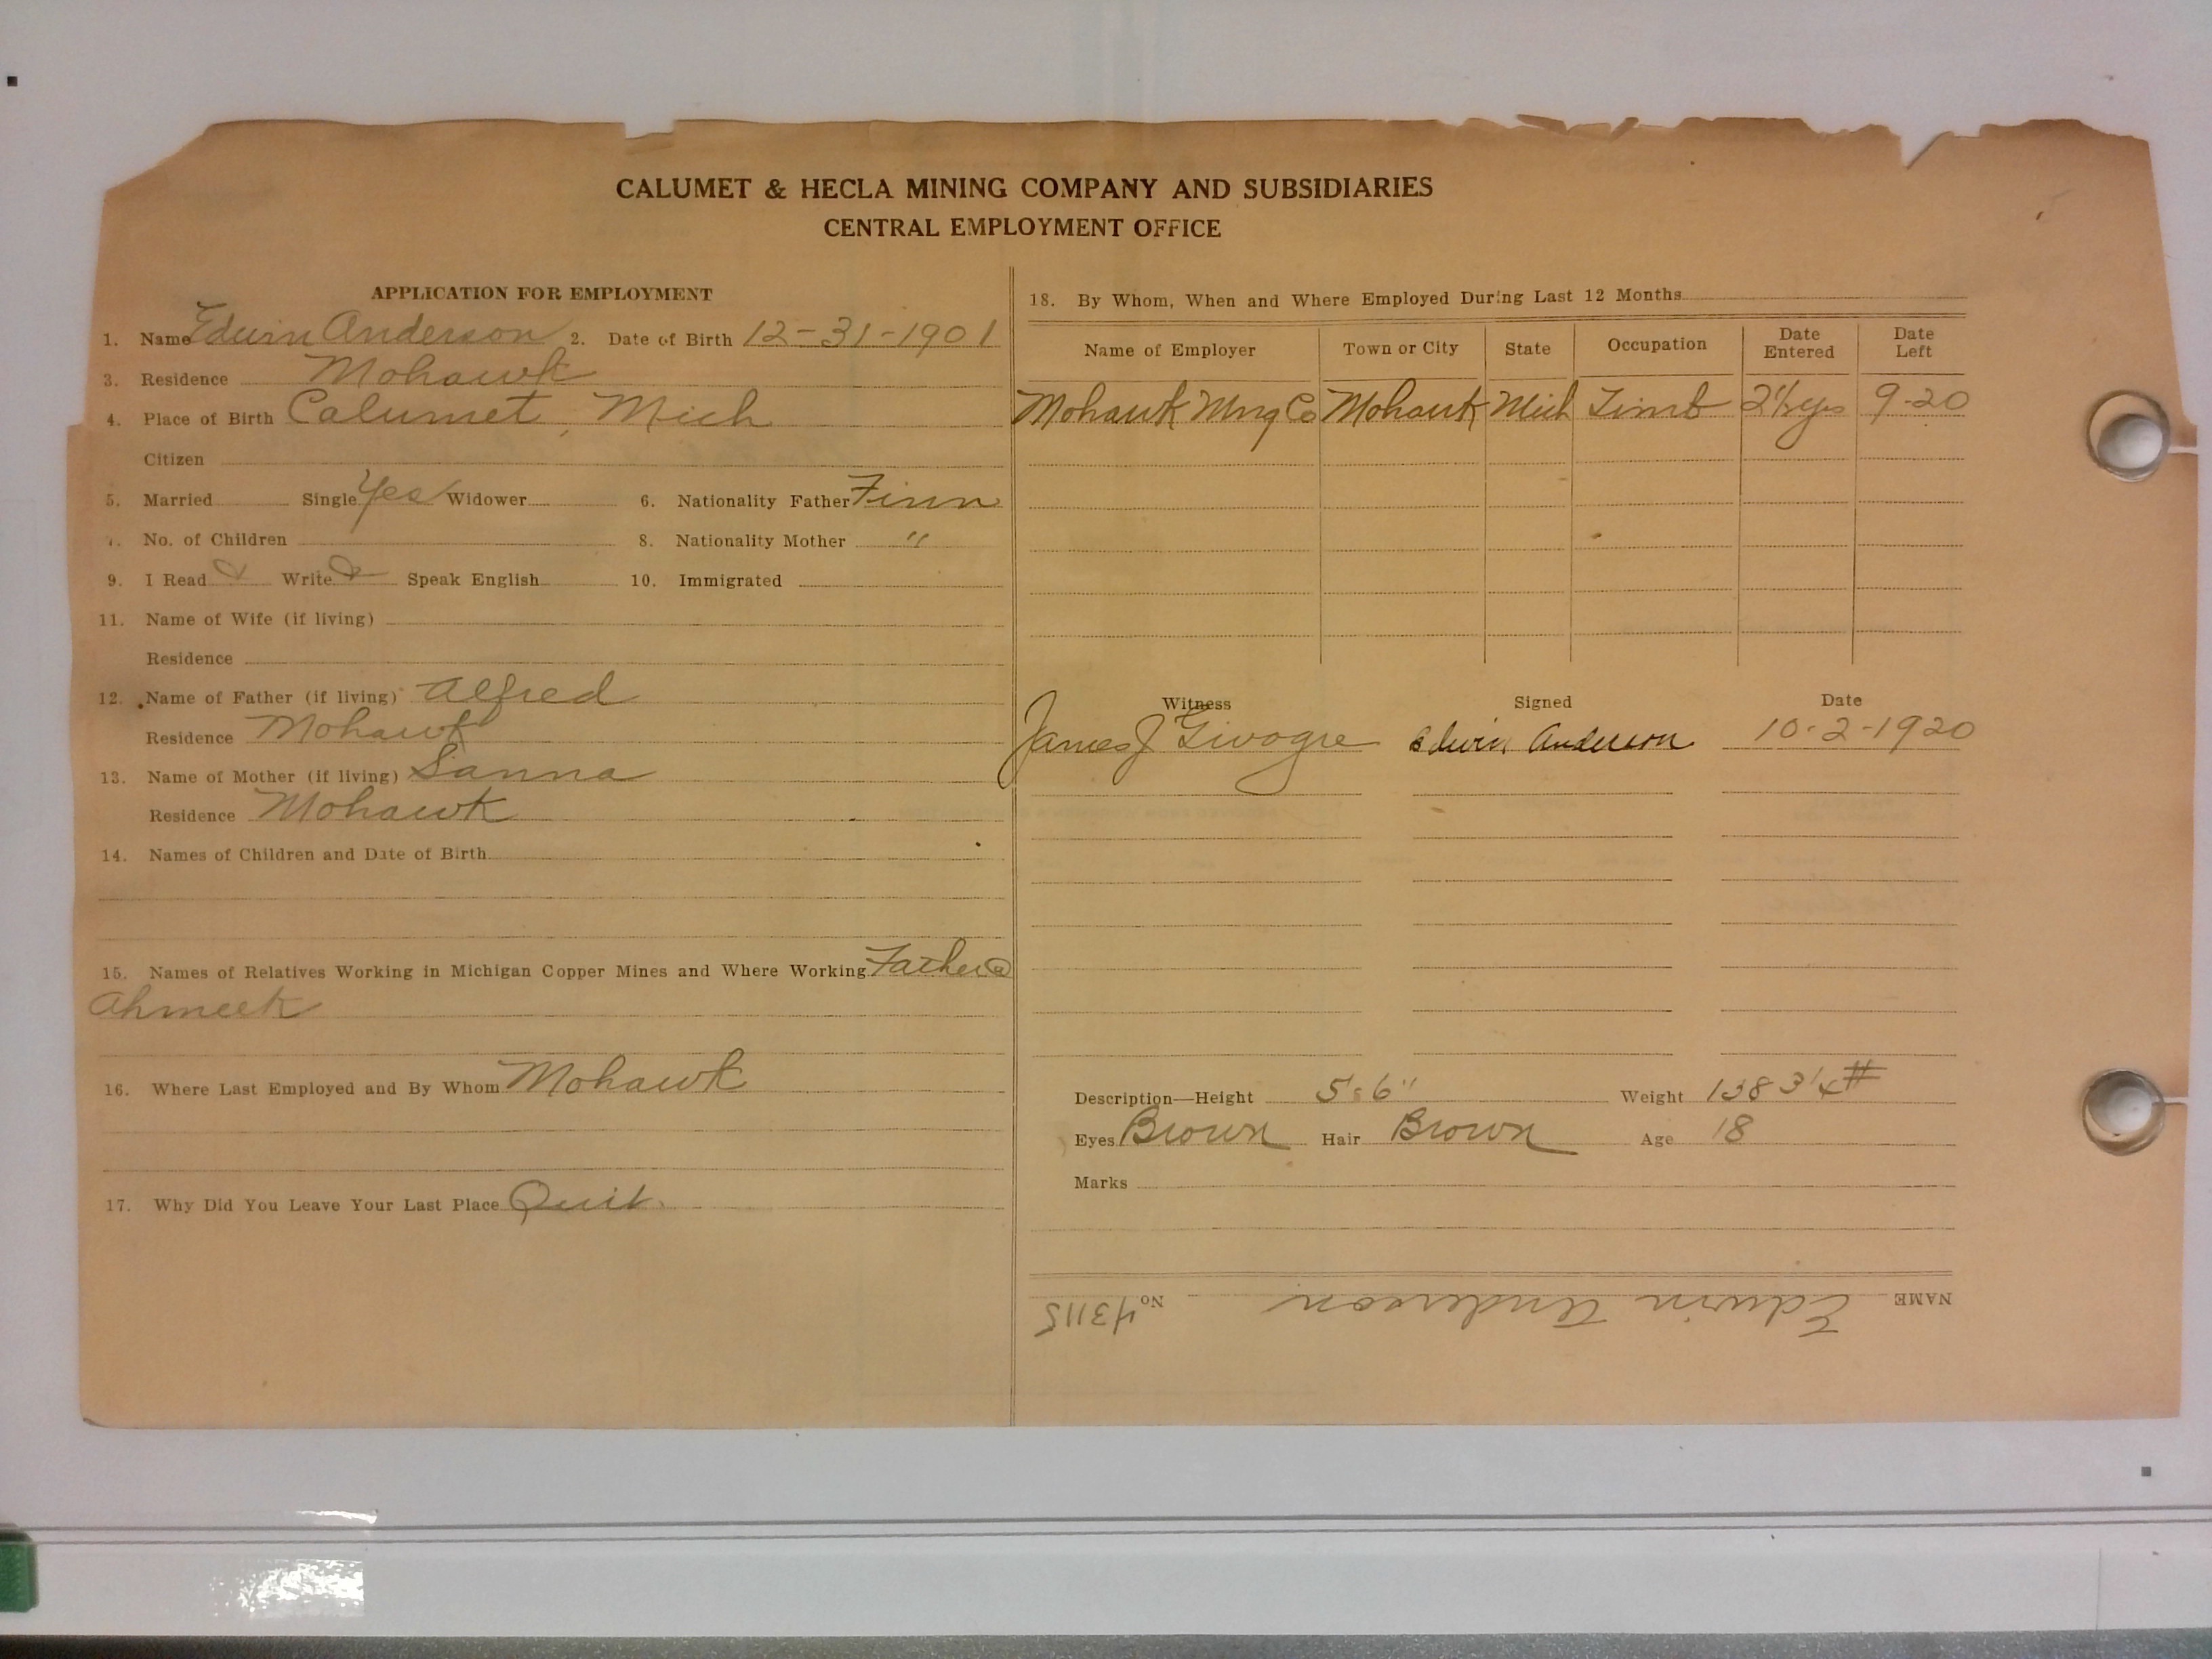 CALUMET & HECLA MINING COMPANY AND SUBSIDIARIES
CENTRAL EMPLOYMENT OFFICE
APPLICATION FOR EMPLOYMENT
1. Name Edwin Anderson 2. Date of Birth 12-31-1901
3. Residence Mohawk
4. Place of Birth Calumet, Mich
Citizen
5. Married Single Yes Widower 6. Nationality Father Finn
7. No. of Children 8. Nationality Mother "
9. I Read Write Speak English 10. Immigrated
11. Name of Wife (if living)
Residence
12. Name of Father (if living) Alfred
Residence Mohawk
13. Name of Mother (if living) Sanna
Residence Mohawk
14. Names of Children and Date of Birth
15. Names of Relatives Working in Michigan Copper Mines and Where Working Father @
Ahmeek
16. Where Last Employed and By Whom Mohawk
17. Why Did You Leave Your Last Place Quit.
18. By Whom, When and Where Employed During Last 12 Months
Name of Employer Town or City State Occupation Date Entered Date Left
Mohawk Mng Co Mohawk Mich Timb yrs 9-20
Witness Signed Date
James J Edwin Anderson 10-2-1920
Description—Height 5' 6" Weight 138 3/4 #
Eyes Brown Hair Brown Age 18
Marks
NAME Edwin Anderson No 43115